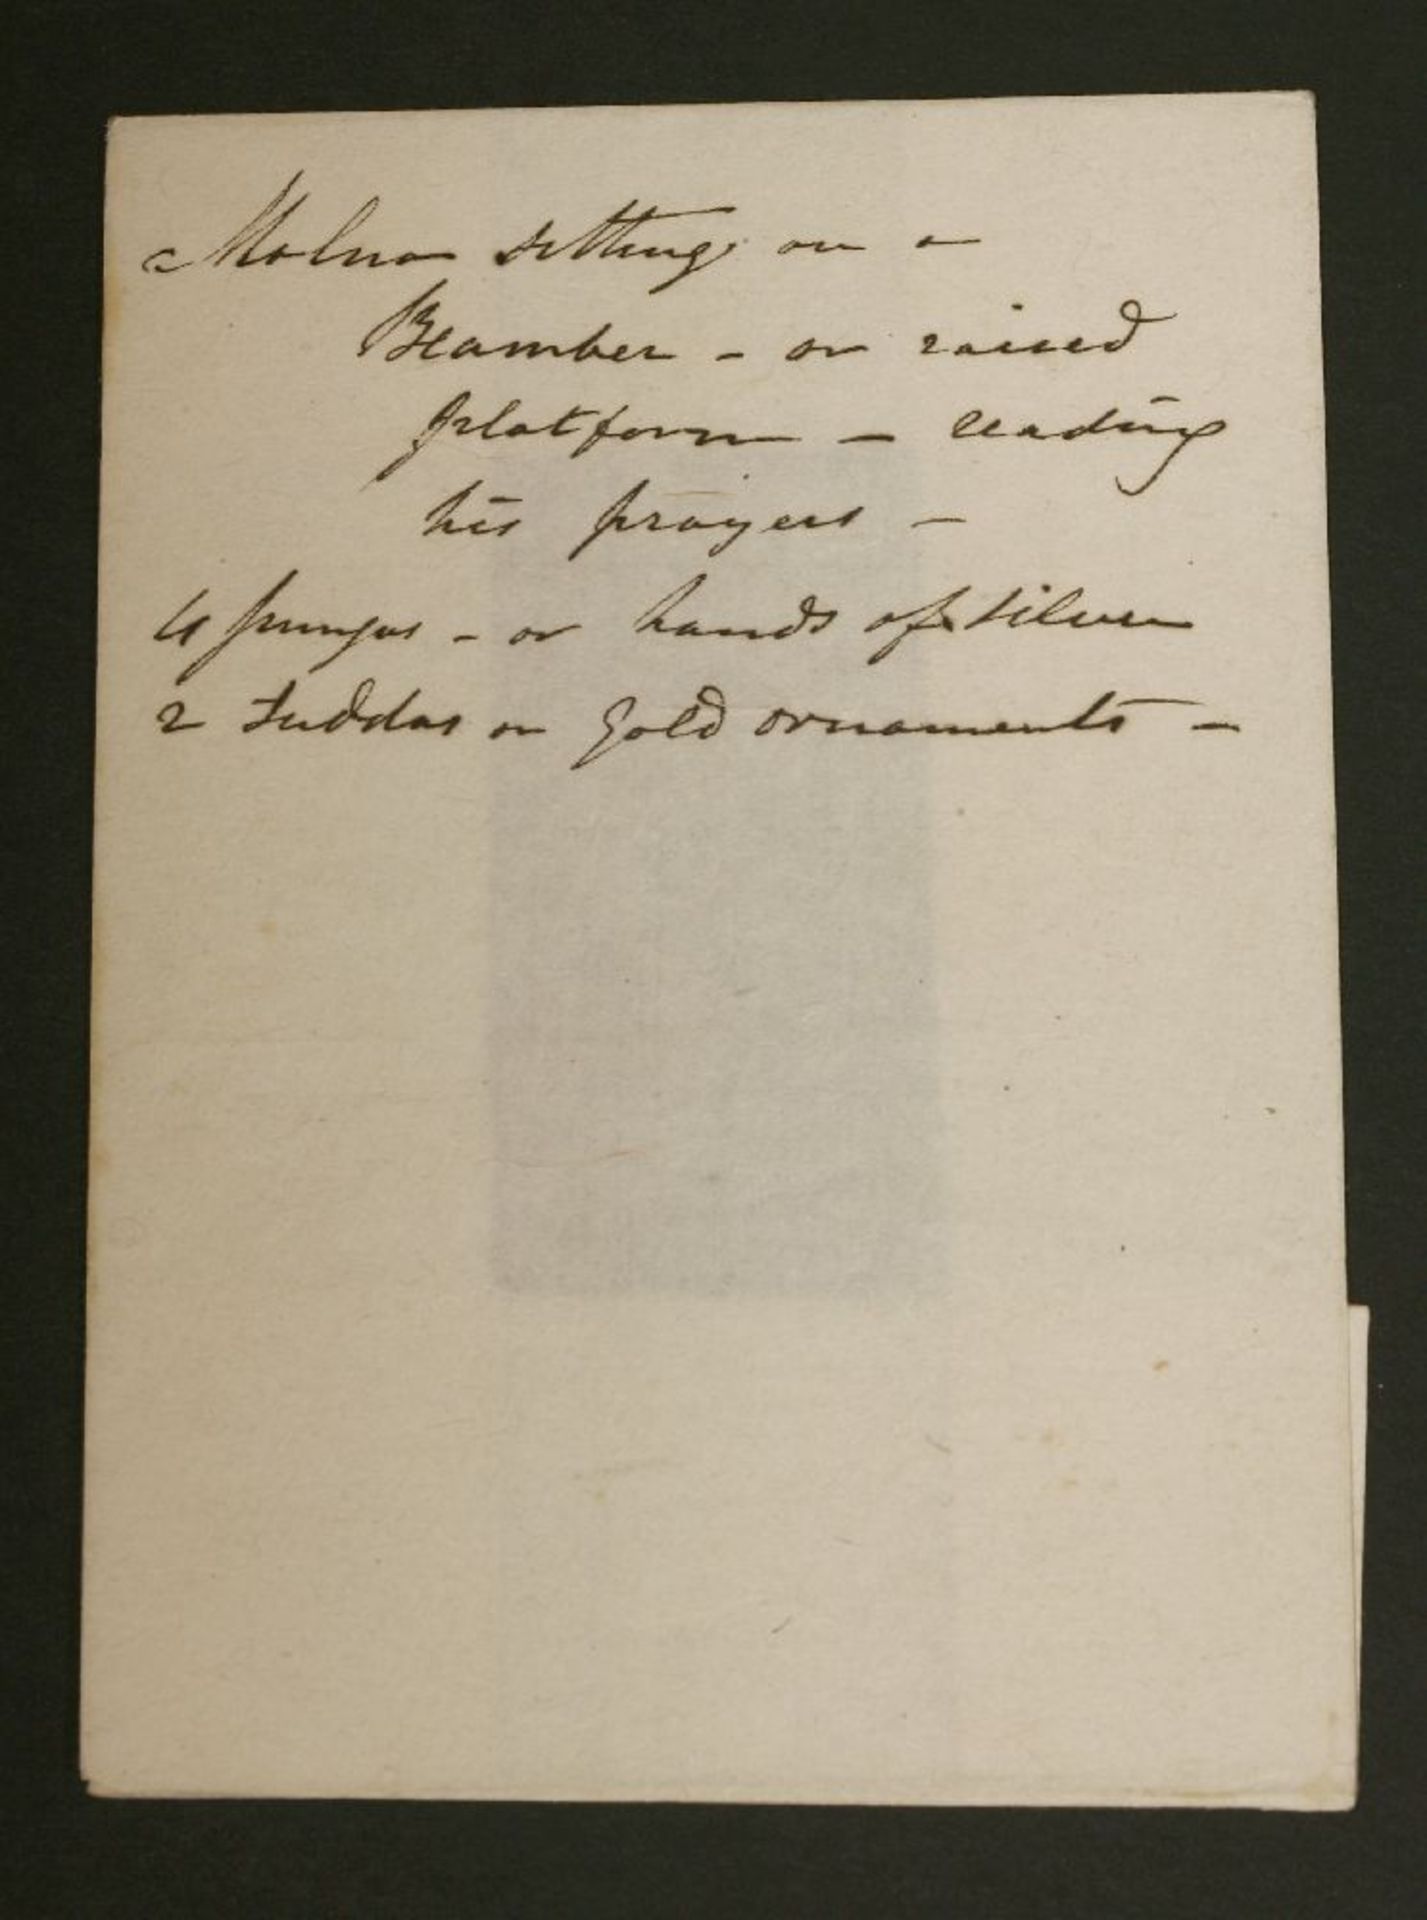 Molna sitting on a
Beamber - or raised
platform - reading
his prayers -
4 pungas - or hands of silver
2 Tuddas or gold ornaments -